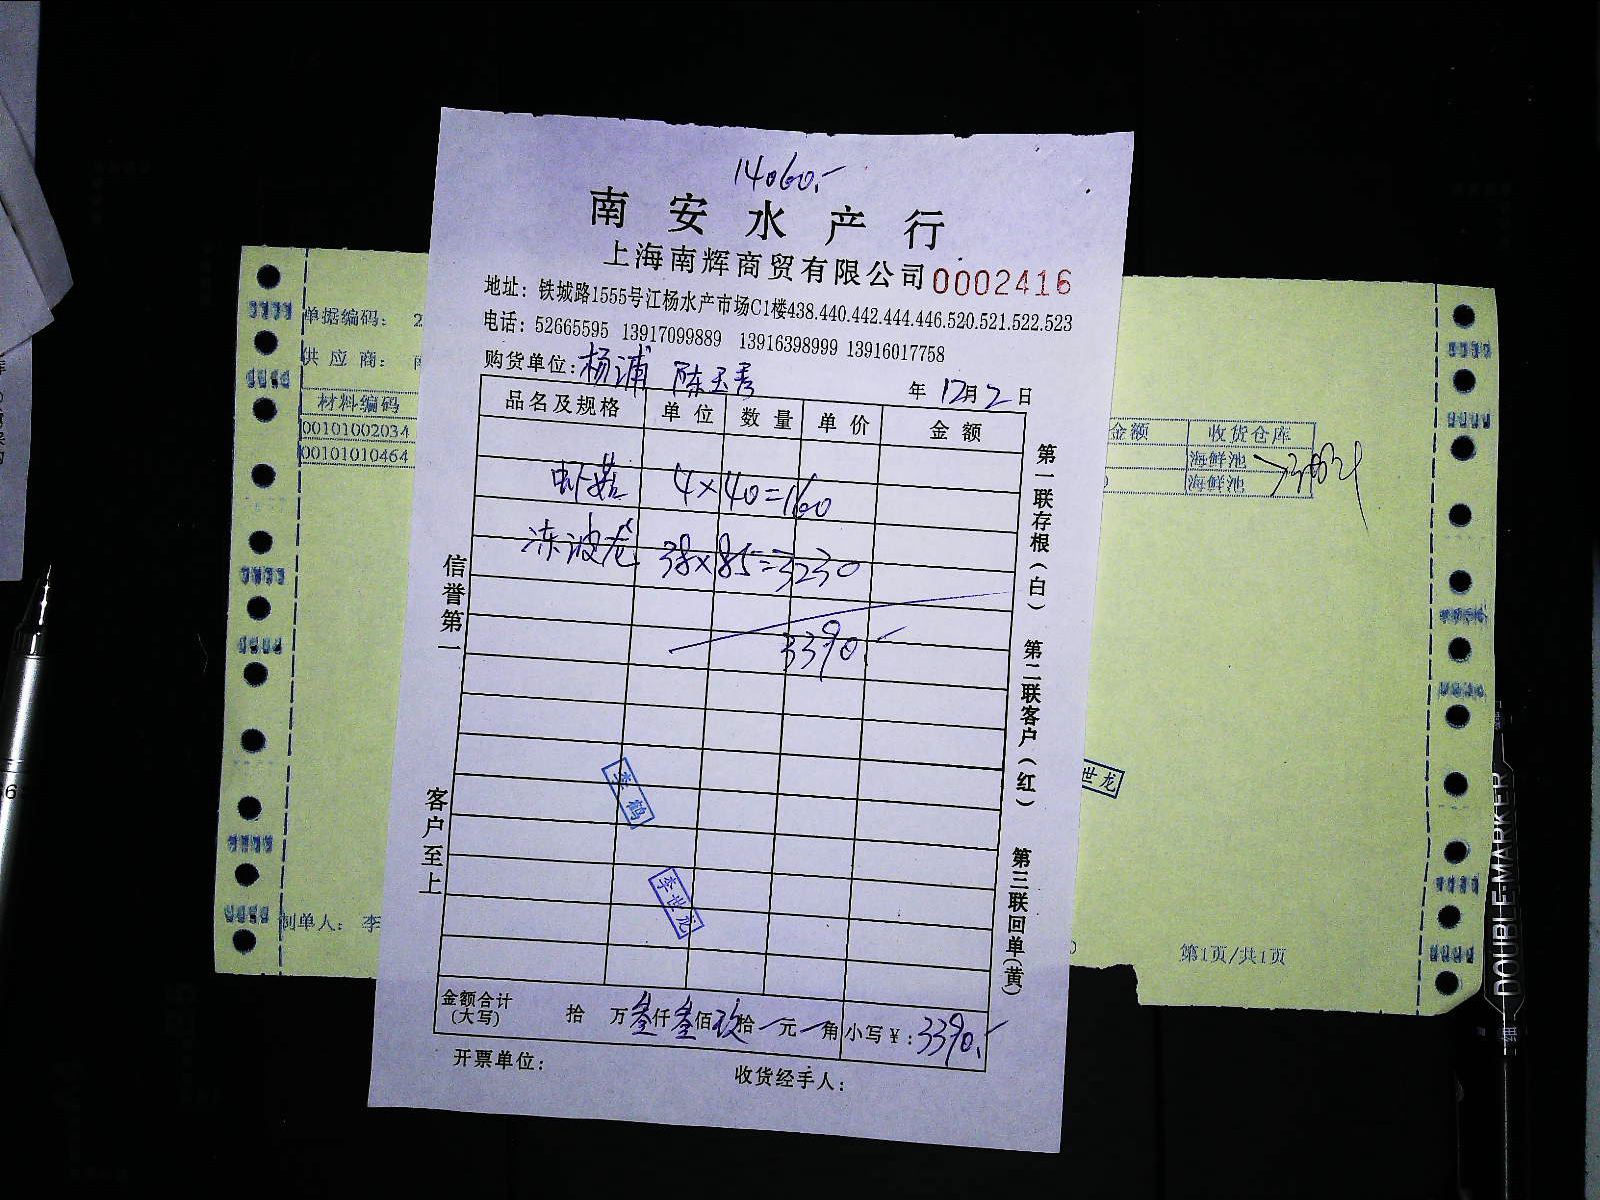 14060.-
南安水产行
上海南辉商贸有限公司 0002416
地址：铁城路1555号江杨水产市场C1楼438.440.442.444.446.520.521.522.523
电话：52665595 13917099889 13916398999 13916017758
购货单位：杨浦 陈玉善 年12月2日
品名及规格 单位 数量 单价 金额
虾菇 4×40=160
冻波龙 38×85=3230
3390.-
李鹤
李世龙
金额合计(大写) 拾 万叁仟叁佰玖拾 元 角 小写¥：3390.-
开票单位： 收货经手人：
信誉第一
客户至上
第一联存根(白)
第二联客户(红)
第三联回单(黄)
单据编码： 2
供应商：
材料编码
00101002034
00101010464
制单人：李
金额 收货仓库
海鲜池
海鲜池
世龙
第1页/共1页
DOUBLE-MARKER